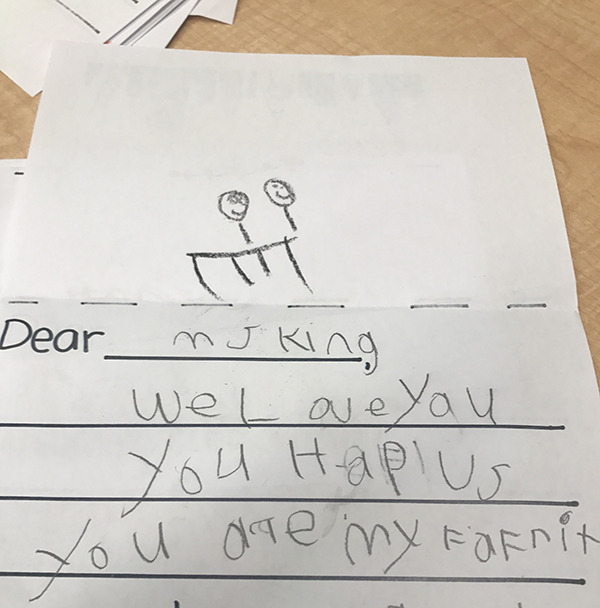 Dear ms King,
We Love You
You HaPl us
You are my FaFnit